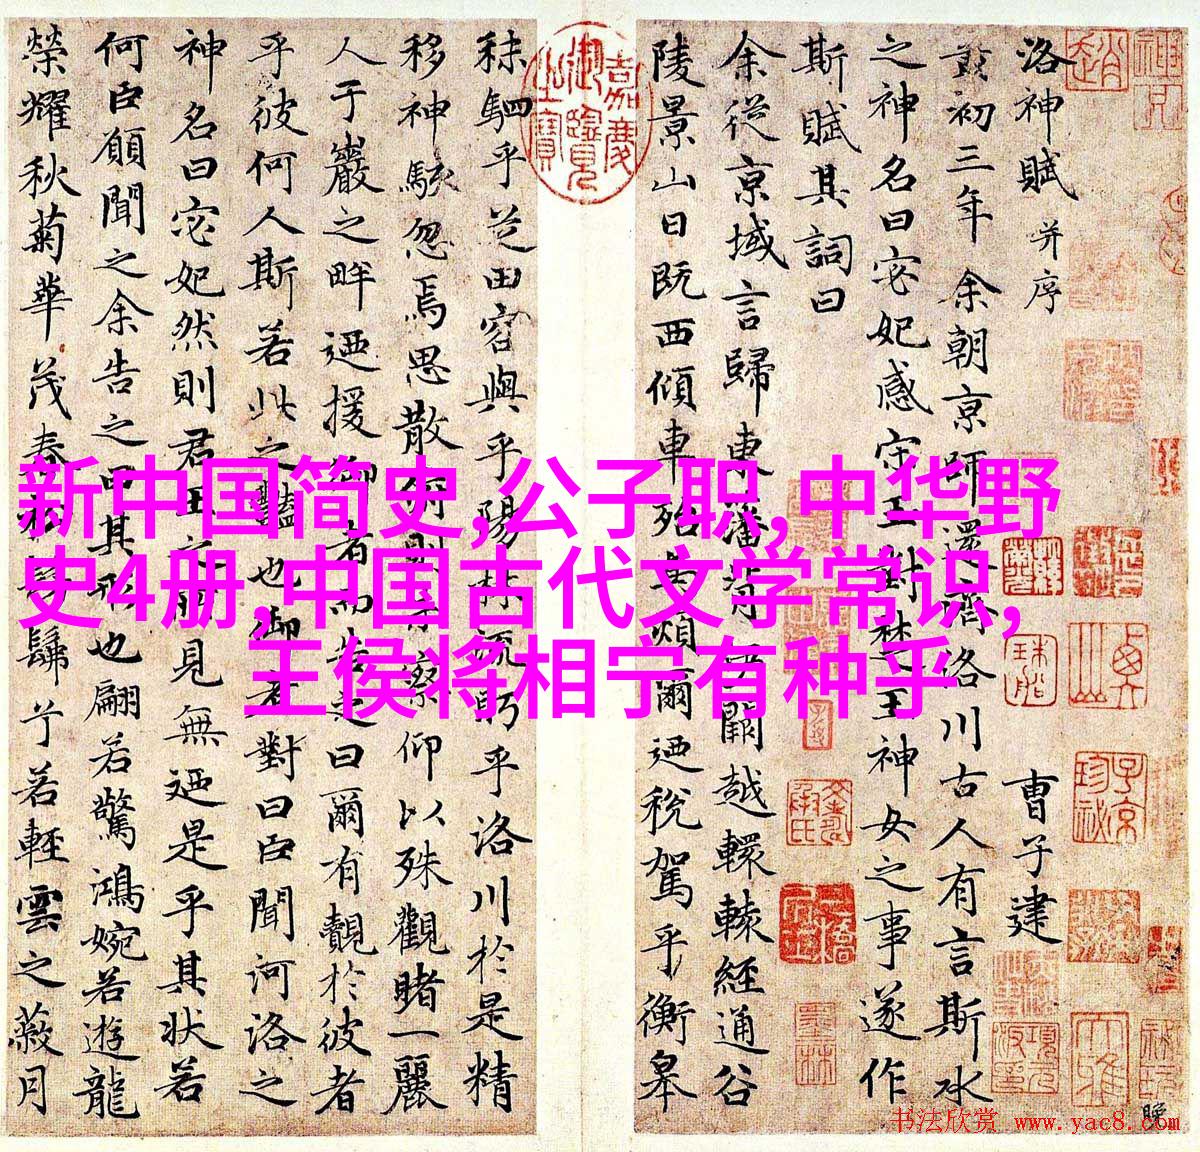 洛神賦 并序
曹子建
黄初三年余朝京師還濟洛川古人有言斯水
之神名曰宓妃感宋玉對楚王神女之事遂作
斯賦其詞曰
余從京域言歸東藩背伊闕越轘轅經通谷
陵景山日既西傾車殆馬煩爾迺稅駕乎蘅皋
秣駟乎芝田容與乎陽林流眄乎洛川於是精
移神駭忽焉思散俯則未察仰以殊觀睹一麗
人于巖之畔迺援御者而告之曰爾有覿於彼者
乎彼何人斯若此之豔也御者對曰臣聞河洛之
神名曰宓妃然則君王之所見無迺是乎其状若
何臣願聞之余告之曰其形也翩若驚鴻婉若遊龍
榮耀秋菊華茂春松髣髴兮若輕雲之蔽月
嘉慶御覽之寶
新中国简史,公子职,中华野
史4册,中国古代文学常识,
王侯将相宁有种乎
书法欣赏 www.yac8.com